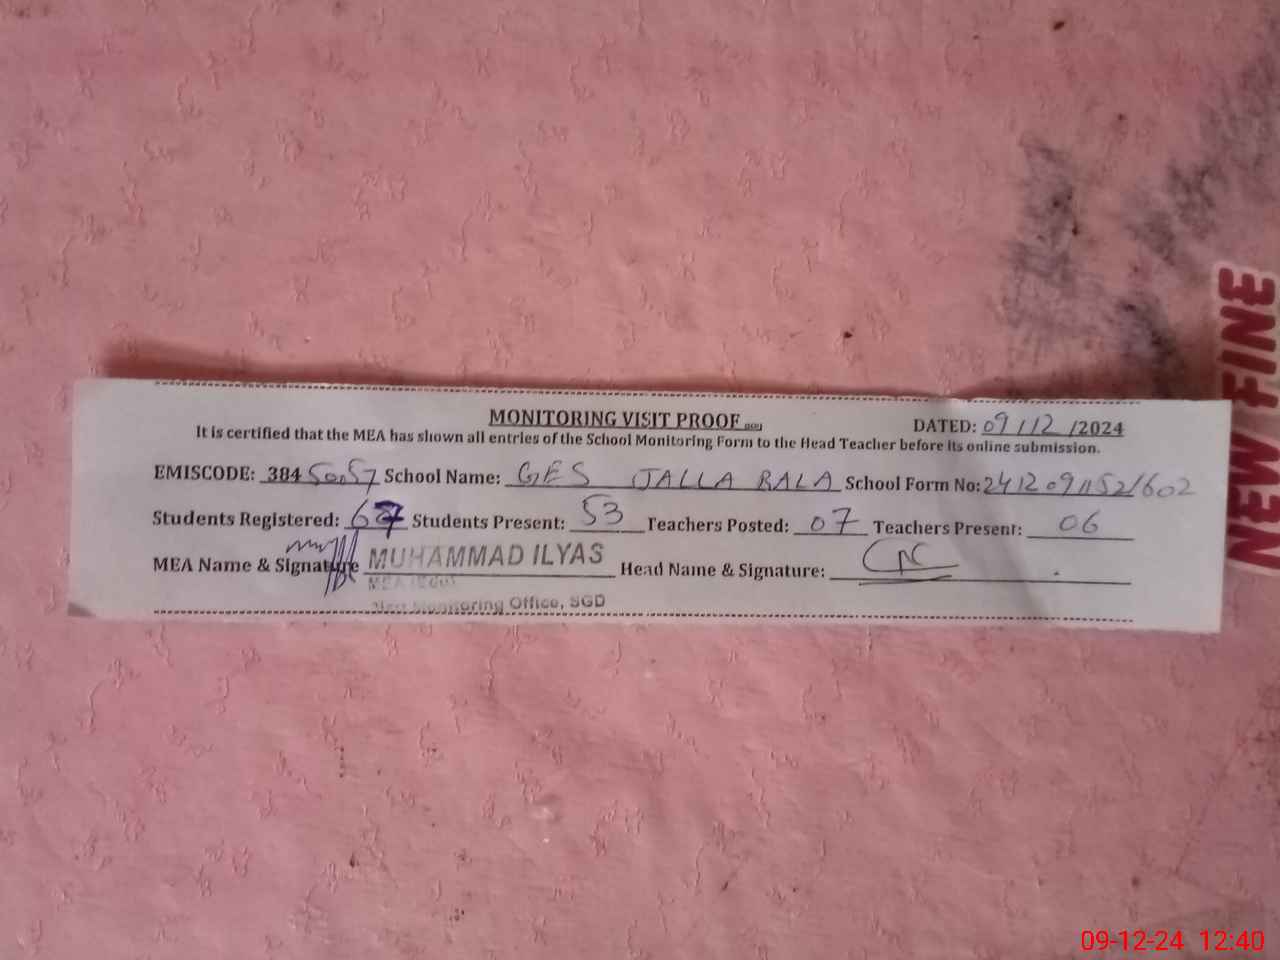 MONITORING VISIT PROOF
DATED: 09/12/2024
It is certified that the MEA has shown all entries of the School Monitoring Form to the Head Teacher before its online submission.
EMISCODE: 38450057 School Name: GES JALLA BALA School Form No: 241209115211602
Students Registered: 67 Students Present: 53 Teachers Posted: 07 Teachers Present: 06
MEA Name & Signature MUHAMMAD ILYAS Head Name & Signature:
Monitoring Office, SGD
NEW FINE
09-12-24 12:40